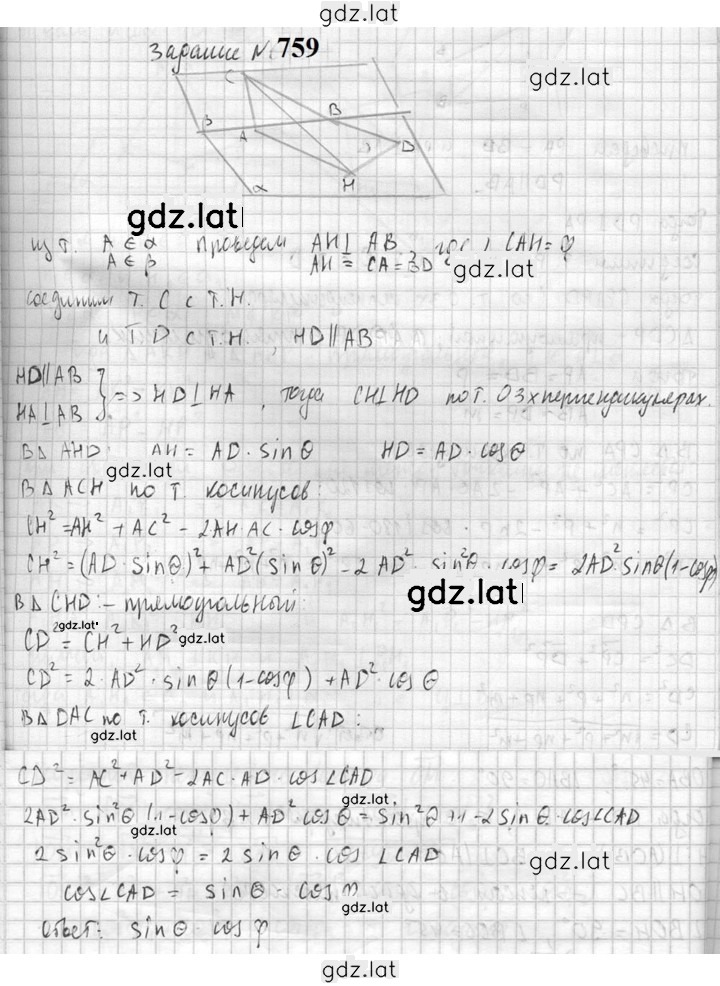 gdz.lat
Задание №759
gdz.lat
C
β
B
A
D
α
H
gdz.lat
из т. A ∈ α проведем AH ⊥ AB, ∠CAH = φ
A ∈ β AH = CA = BD
gdz.lat
соединим т. C с т. H.
и т. D с т. H, HD ∥ AB
HD ∥ AB
HA ⊥ AB } => HD ⊥ HA, тогда CH ⊥ HD по т. О 3х перпендикулярах.
В Δ AHD: AH = AD · sin θ HD = AD · cos θ
gdz.lat
В Δ ACH по т. косинусов:
CH² = AH² + AC² - 2AH AC · cos φ
CH² = (AD · sin θ)² + AD² (sin θ)² - 2 AD² · sin²θ · cos φ = 2AD² · sin θ (1 - cos φ)
В Δ CHD: - прямоугольный:
gdz.lat
gdz.lat
CD² = CH² + HD²
gdz.lat
CD² = 2 · AD² · sin θ (1 - cos φ) + AD² · cos θ
В Δ DAC по т. косинусов ∠CAD:
gdz.lat
CD² = AC² + AD² - 2AC · AD · cos ∠CAD
gdz.lat
2AD² · sin²θ (1 - cos φ) + AD² · cos θ = sin²θ + 1 - 2 sin θ · cos ∠CAD
gdz.lat
2 sin²θ · cos φ = 2 sin θ · cos ∠CAD
gdz.lat
cos ∠CAD = sin θ · cos φ
gdz.lat
Ответ: sin θ · cos φ
gdz.lat